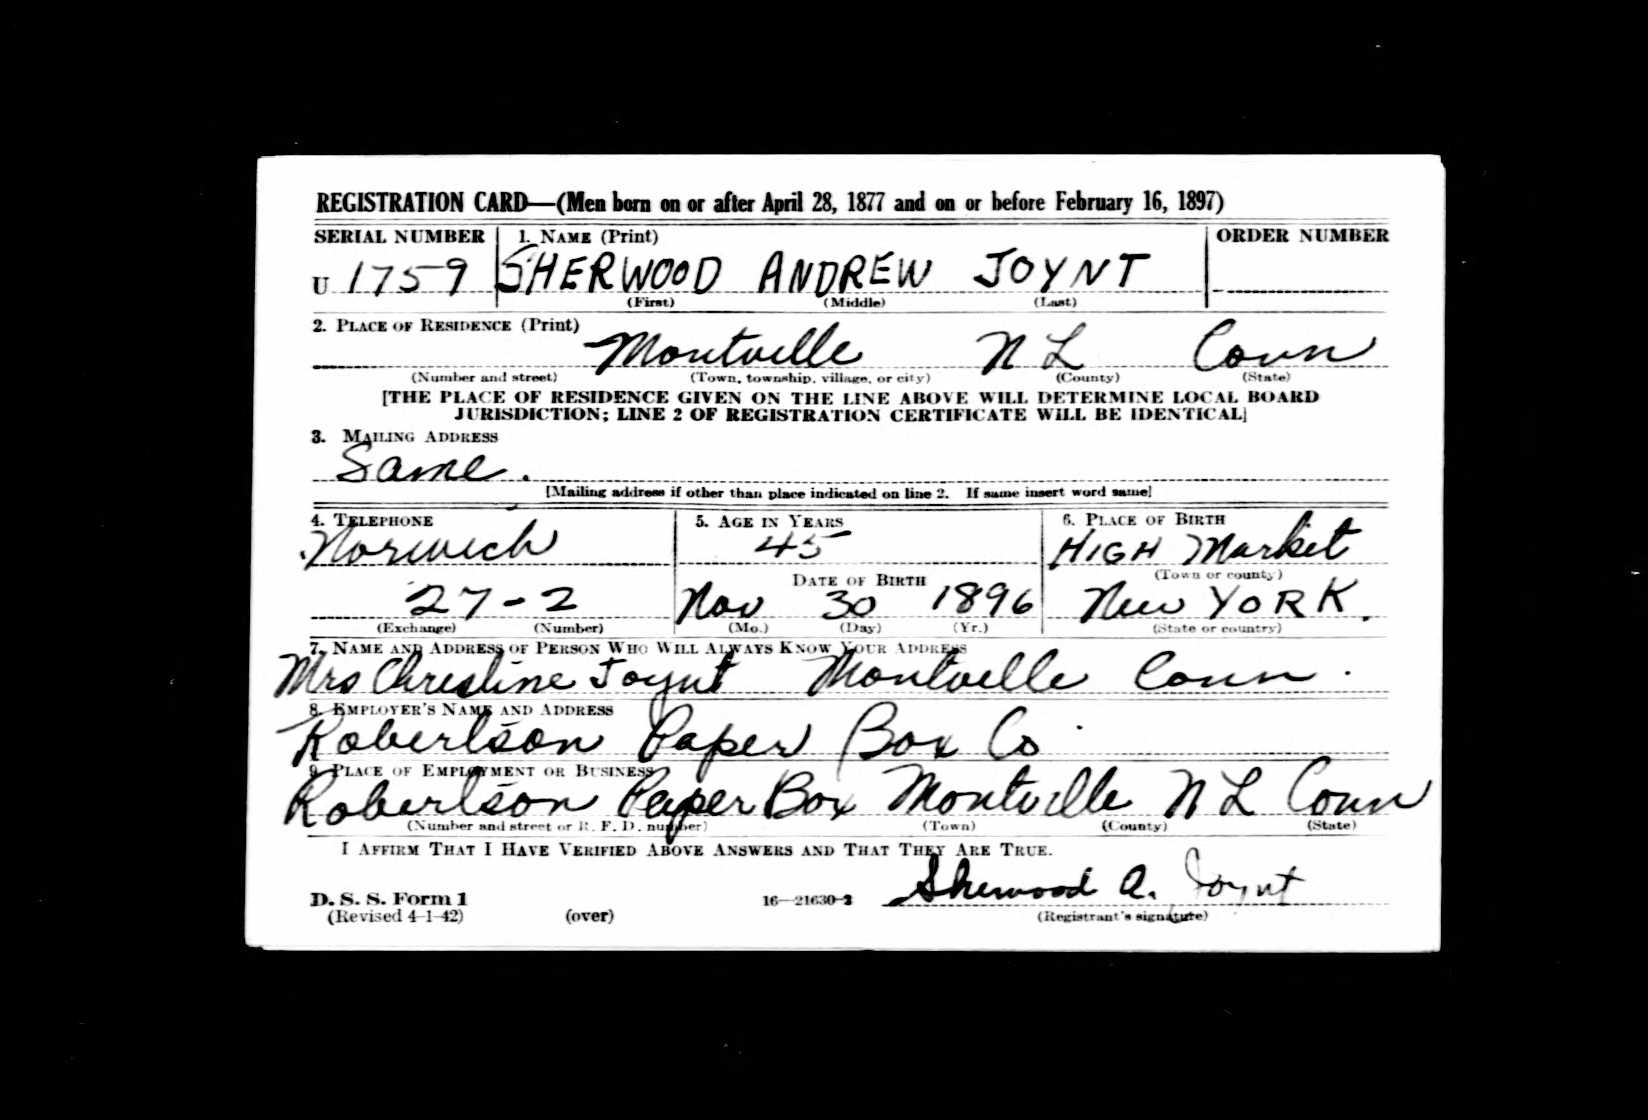 REGISTRATION CARD—(Men born on or after April 28, 1877 and on or before February 16, 1897)
SERIAL NUMBER 1. NAME (Print) ORDER NUMBER
U 1759 SHERWOOD ANDREW JOYNT
(First) (Middle) (Last)
2. PLACE OF RESIDENCE (Print)
Montville N L Conn
(Number and street) (Town, township, village, or city) (County) (State)
[THE PLACE OF RESIDENCE GIVEN ON THE LINE ABOVE WILL DETERMINE LOCAL BOARD
JURISDICTION; LINE 2 OF REGISTRATION CERTIFICATE WILL BE IDENTICAL]
3. MAILING ADDRESS
Same.
[Mailing address if other than place indicated on line 2. If same insert word same]
4. TELEPHONE 5. AGE IN YEARS 6. PLACE OF BIRTH
Norwich 45 HIGH Market
DATE OF BIRTH (Town or county)
27-2 Nov 30 1896 New YORK.
(Exchange) (Number) (Mo.) (Day) (Yr.) (State or country)
7. NAME AND ADDRESS OF PERSON WHO WILL ALWAYS KNOW YOUR ADDRESS
Mrs Christine Joynt Montville Conn.
8. EMPLOYER'S NAME AND ADDRESS
Robertson Paper Box Co.
9. PLACE OF EMPLOYMENT OR BUSINESS
Robertson Paper Box Montville N L Conn
(Number and street or R. F. D. number) (Town) (County) (State)
I AFFIRM THAT I HAVE VERIFIED ABOVE ANSWERS AND THAT THEY ARE TRUE.
Sherwood A. Joynt
D. S. S. Form 1 16—21630-2
(Revised 4-1-42) (over) (Registrant's signature)